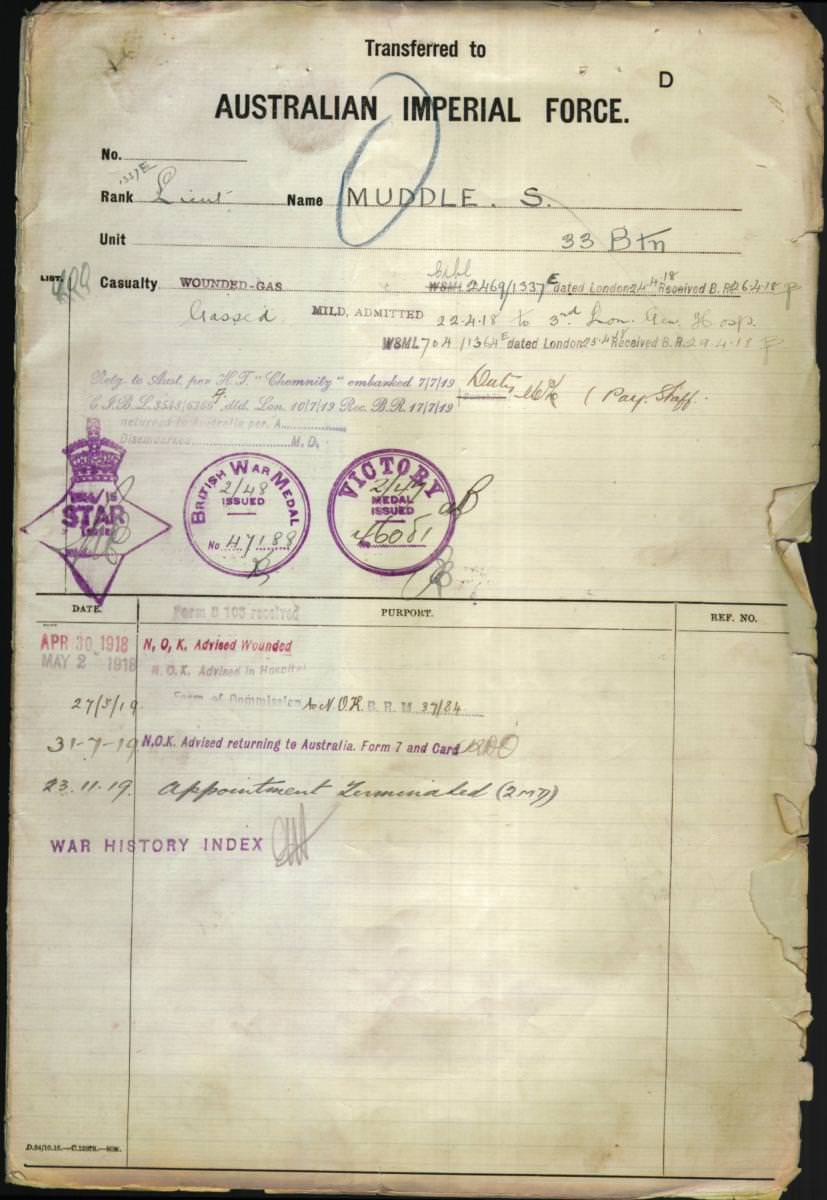 Transferred to
D
AUSTRALIAN IMPERIAL FORCE.
No.
Rank Lieut Name MUDDLE. S.
Unit 33 Btn
LIST.
Casualty WOUNDED-GAS Cabl W8ML 2469/1337E dated London 24 4 18 Received B. R. 26.4.18
Gassed MILD, ADMITTED 22.4.18 to 3rd Lon. Gen. Hosp.
W8ML 704/1364E dated London 25.4.18 Received B.R. 29.4.18
Retg. to Aust. per H.T. "Chemnitz" embarked 7/7/19 Duty (Pay. Staff.
C.I.B.L. 3548/6366 dtd. Lon. 10/7/19 Rec. B.R. 17/7/19
returned to Australia per. A.
Disembarked M.D.
1914/15
STAR
BRITISH WAR MEDAL
2/48
ISSUED
No 47188
VICTORY
2/47
MEDAL
ISSUED
46081
DATE. PURPORT. REF. NO.
Form B 103 received
APR 30 1918 N. O. K. Advised Wounded
MAY 2 1918 N. O. K. Advised in Hospital
27/5/19 Form of Commission to N.O.K B. R. M. 37/84
31-7-19 N.O.K. Advised returning to Australia. Form 7 and Card
23.11.19. Appointment Terminated (2MD)
WAR HISTORY INDEX